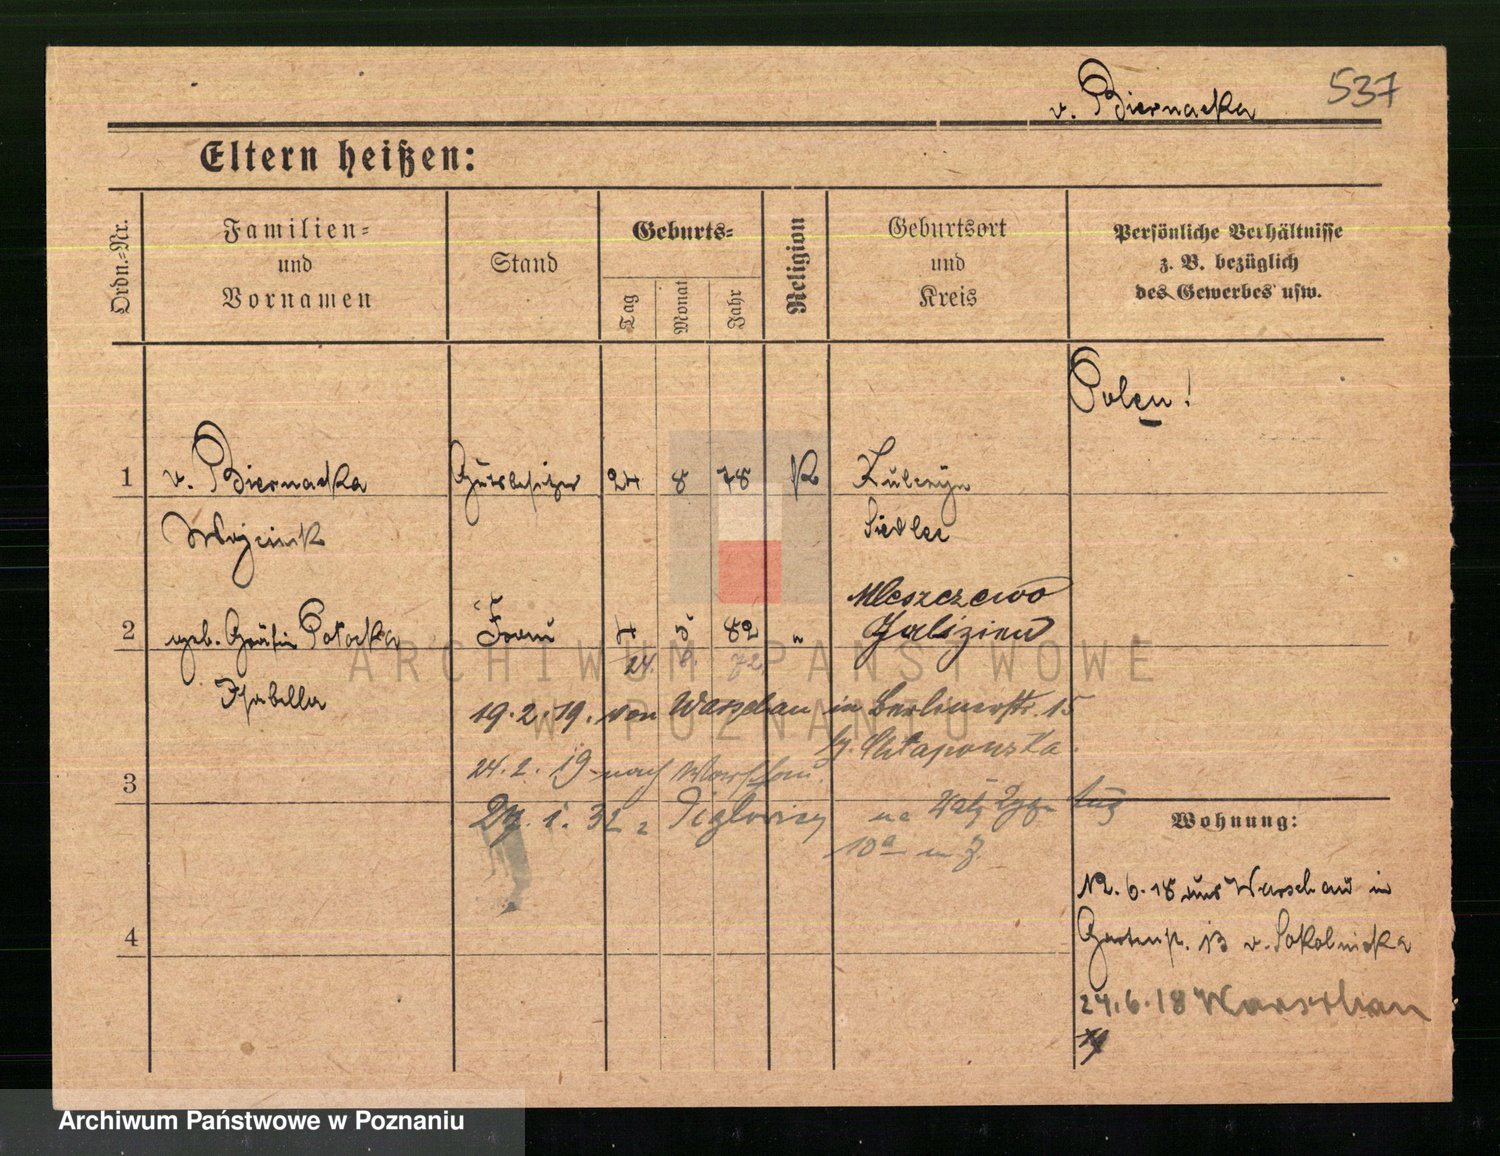 v. Biernacka 537
Eltern heißen:
Ordn.-Nr.
Familien-
und
Vornamen
Stand
Geburts-
Tag
Monat
Jahr
Religion
Geburtsort
und
Kreis
Persönliche Verhältnisse
z. B. bezüglich
des Gewerbes usw.
Polen!
1 v. Biernacka Gutsbesitzer 24 8 78 K
Siedlec
2 geb. Gräfin Potocka Frau 4 5 82 "
Galizien
24. 6. 72
Isabella
19. 2. 19. von Warschau in Berlinerstr. 15
24. 2. 19 nach Warschau.
3
10a
Wohnung:
12. 6. 18 aus Warschau in
4 Gartenstr. 13 v. Sokolnicka
24. 6. 18 Warschau
ARCHIWUM PAŃSTWOWE
W POZNANIU
Archiwum Państwowe w Poznaniu